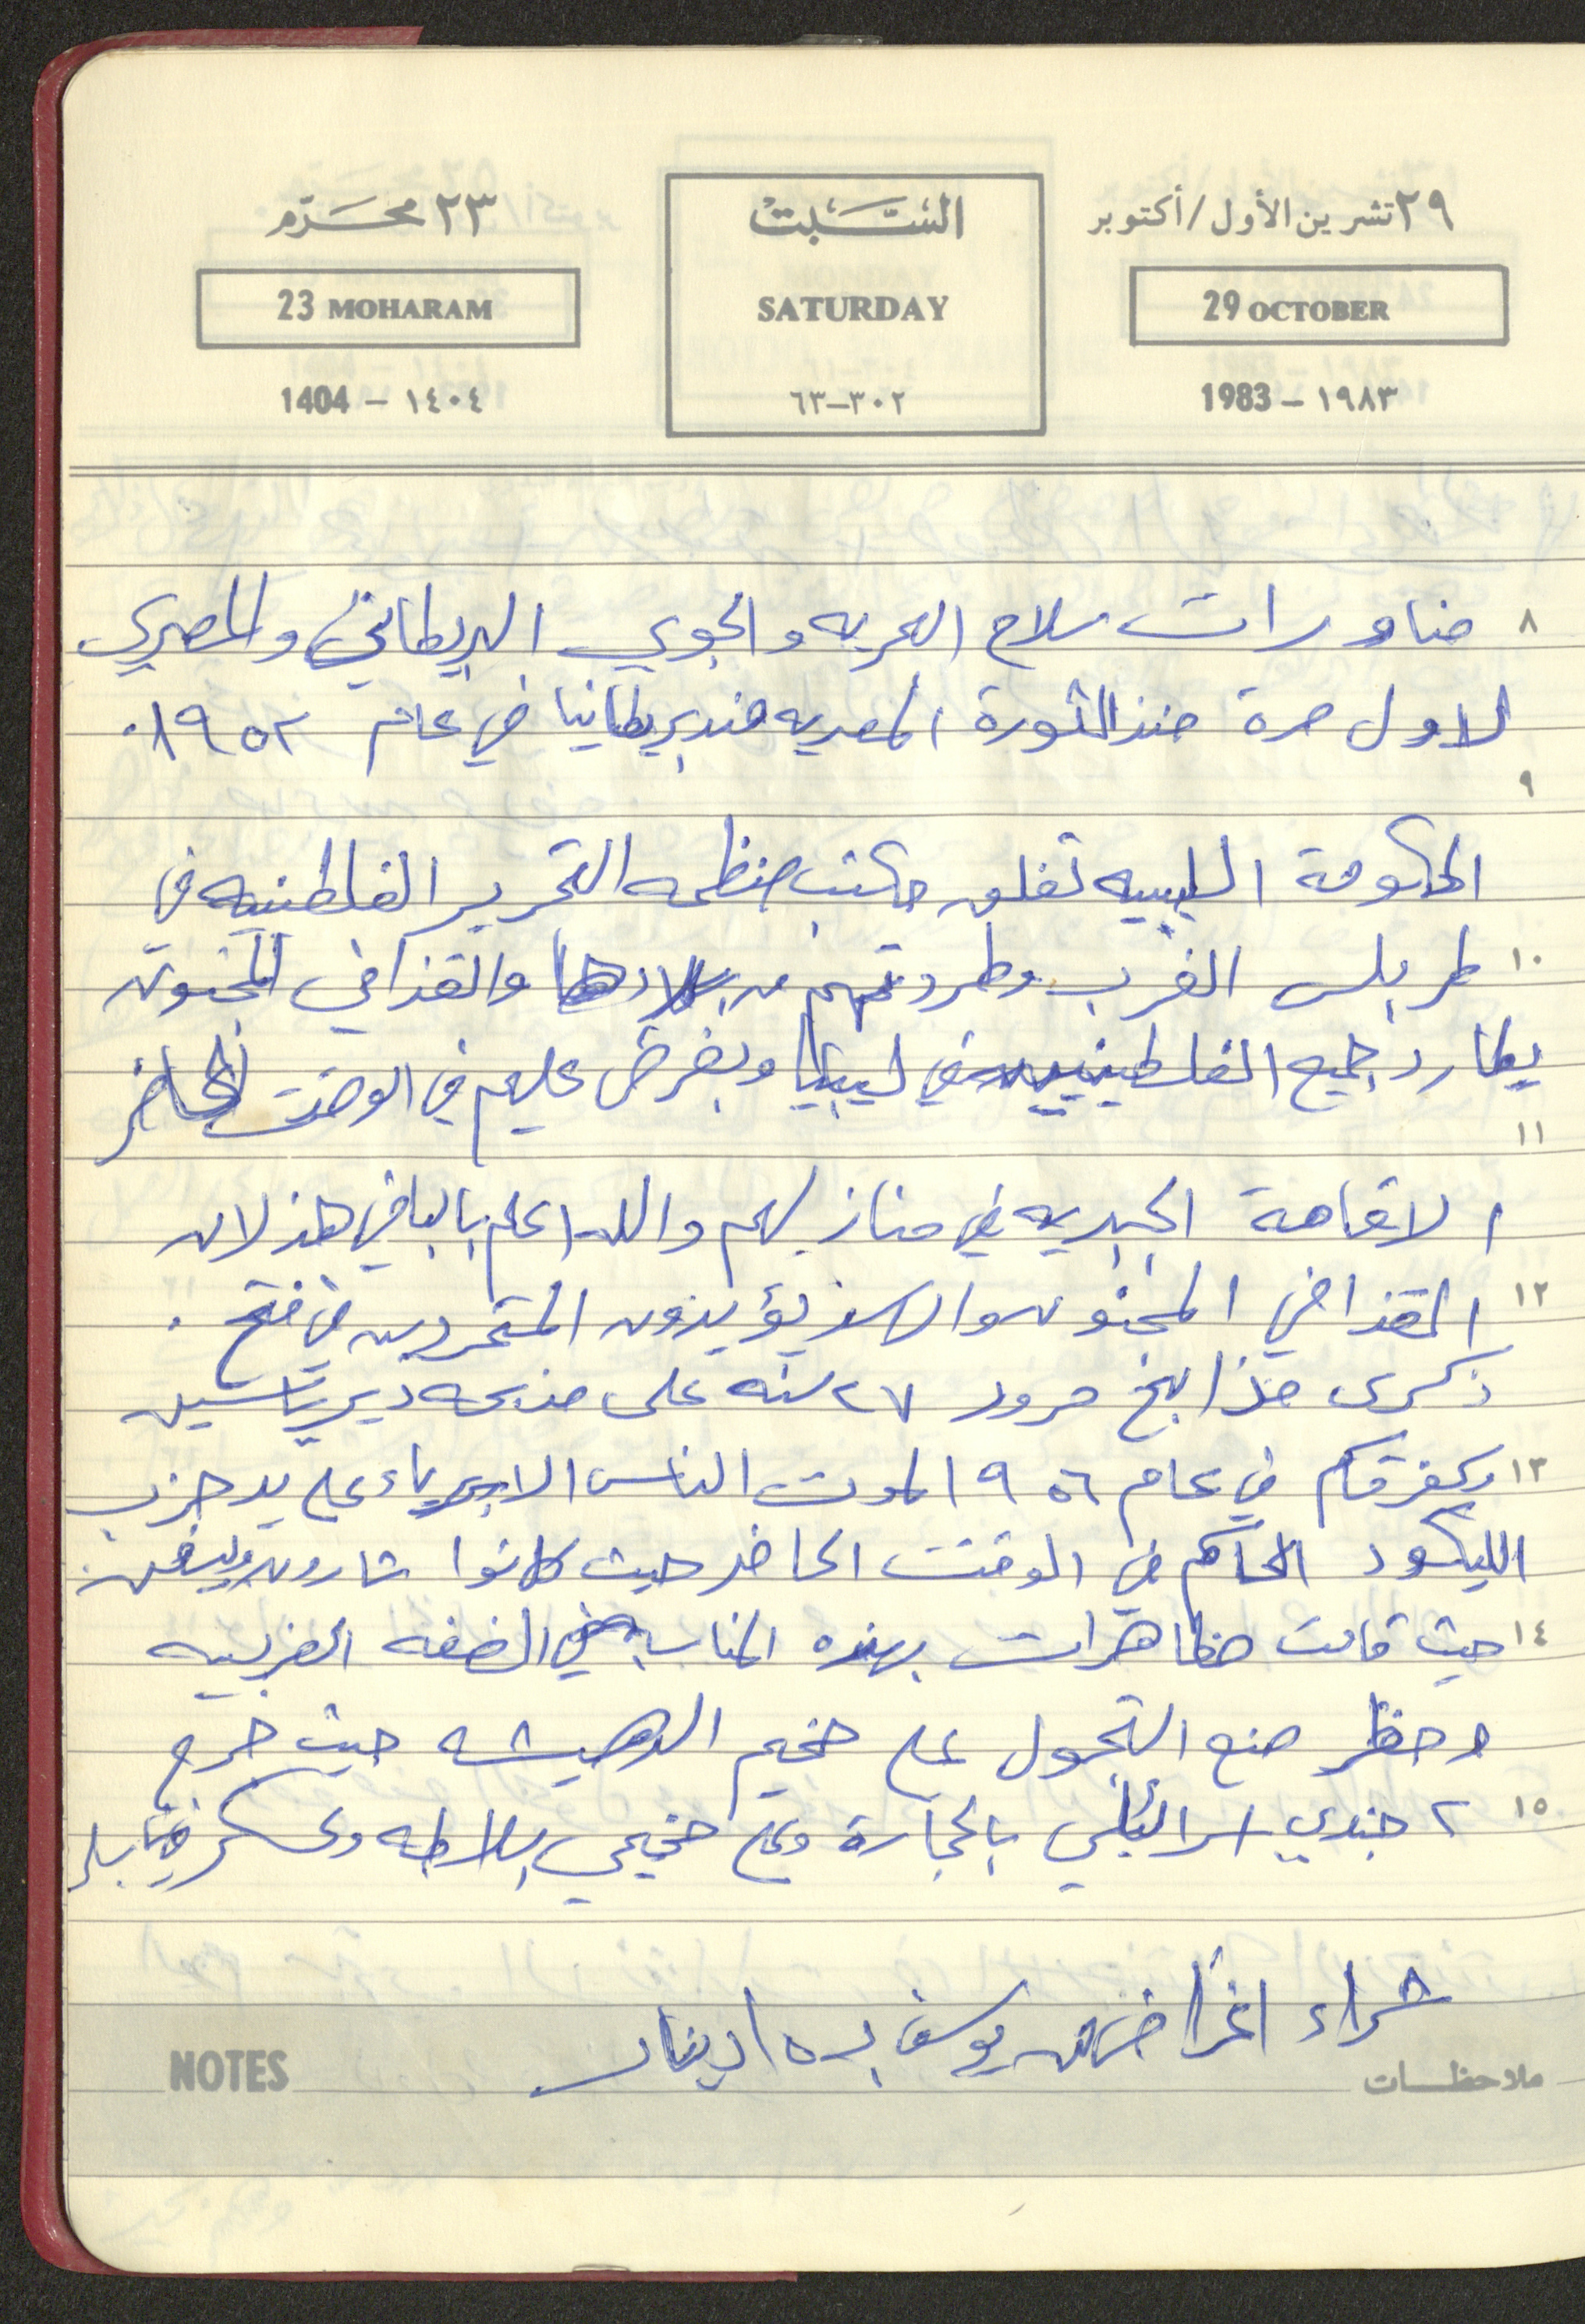 ٢٩ تشرين الأول/أكتوبر
29 OCTOBER
1983 - ١٩٨٣
السَّبت
SATURDAY
٣٠٢-٦٣
٢٣ محرّم
23 MOHARAM
1404 - ١٤٠٤
٨ مناورات سلاح البحريه والجوي البريطاني والمصري
لاول مرة منذ الثورة المصريه ضد بريطانيا في عام ١٩٥٢.
٩
الحكومة الليبيه تغلق مكتب منظمه التحرير الفلطنيه في
١٠ طربلس الغرب وطردتهم من بلادها والقذافي المجنون
يطارد جميع الفلسطينيين في ليبيا ويفرض عليهم في الوقت الحاضر
١١
الاقامة الجبريه في منازلهم والله اعلم بالباقي هذ لان
١٢ القذافي المجنون والاسد يؤيدون المتمردين في فتح .
ذكرى مذابح مرور ٢٧ سنه على مذبحه دير ياسين
١٣ وكفرقاسم في عام ١٩٥٦ الموت الناس الابرياء على يد حزب
الليكود الحاكم في الوقت الحاضر حيث كانوا شارون وبيغن.
١٤ حيث قامت مظاهرات بهذه المناسبه في الضفه الغربيه
وحظر منع التجول على مخيم الدهيشه حيث جرح
١٥ ٢ جندي اسرائيلي بالحجارة وعلى مخيمي بلاطه وعسكر نابلس
شراء اغراض من يوسف بـ ١٥ دينار
ملاحظات
NOTES